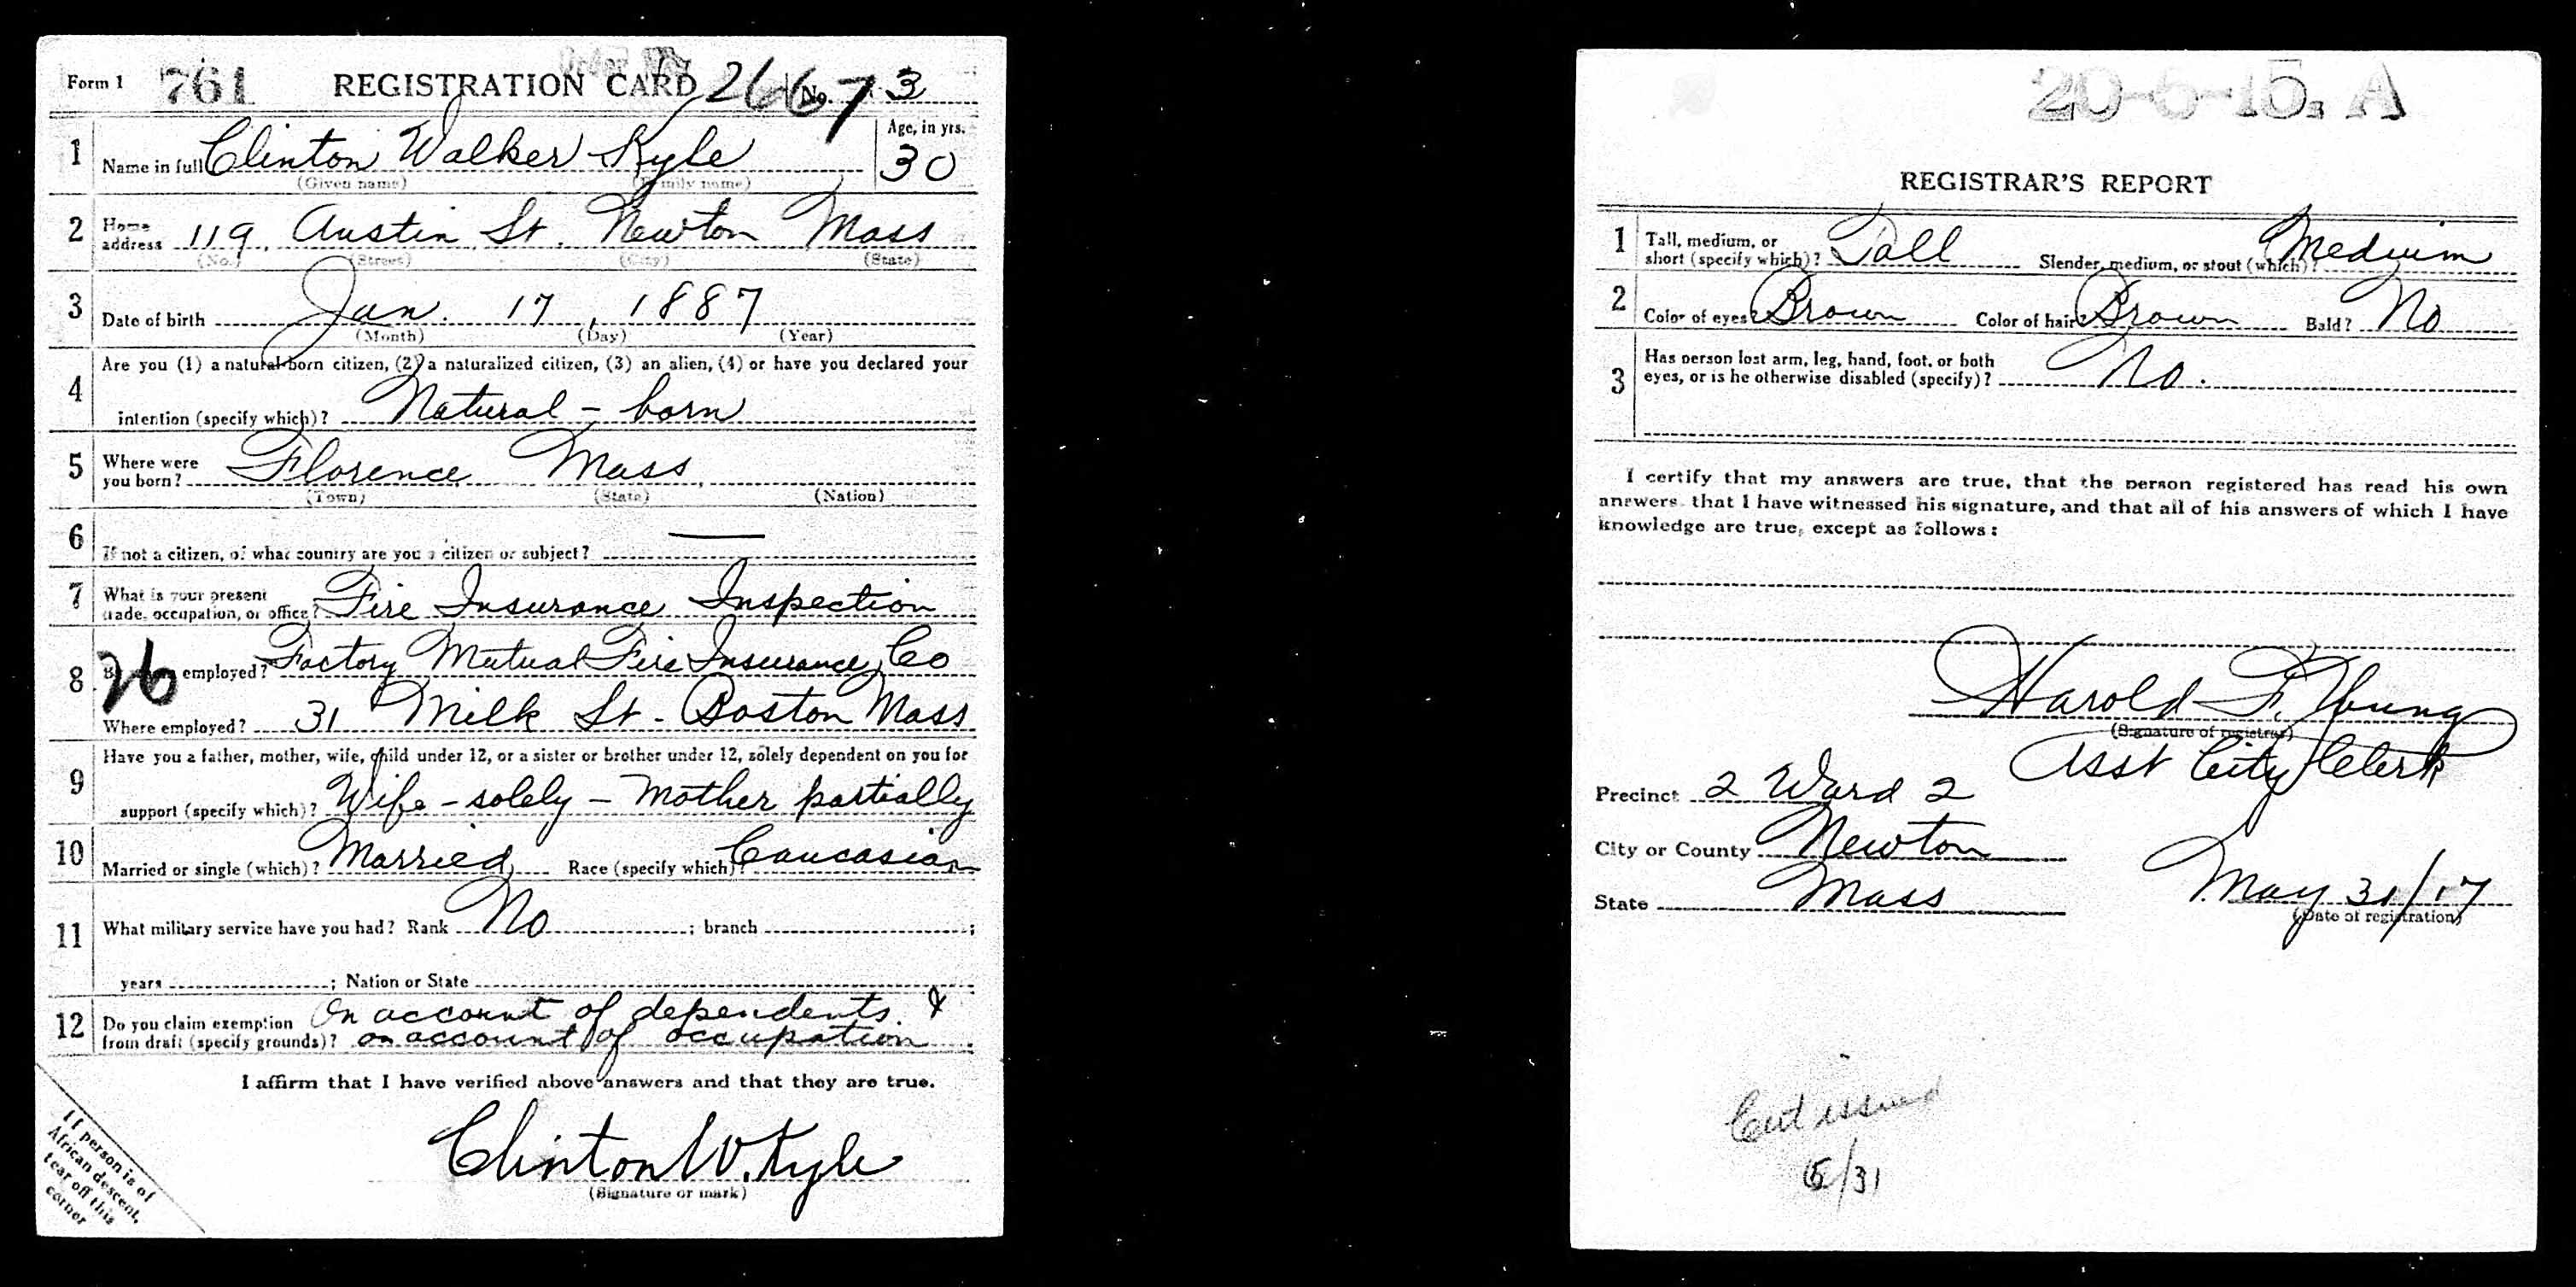 Form 1 761 REGISTRATION CARD 2667 No. 3
1 Name in full Clinton Walker Kyle Age, in yrs. 30
(Given name) (Family name)
2 Home address 119, Austin St. Newton Mass
(No.) (Street) (City) (State)
3 Date of birth Jan. 17, 1887
(Month) (Day) (Year)
4 Are you (1) a natural-born citizen, (2) a naturalized citizen, (3) an alien, (4) or have you declared your
intention (specify which)? Natural - born
5 Where were you born? Florence Mass,
(Town) (State) (Nation)
6 If not a citizen, of what country are you a citizen or subject? —
7 What is your present trade, occupation, or office? Fire Insurance Inspection
8 26 employed? Factory Mutual Fire Insurance Co
Where employed? 31 Milk St - Boston Mass
9 Have you a father, mother, wife, child under 12, or a sister or brother under 12, solely dependent on you for
support (specify which)? Wife - solely - Mother partially
10 Married or single (which)? Married Race (specify which)? Caucasian
11 What military service have you had? Rank No ; branch ;
years ; Nation or State
12 Do you claim exemption On account of dependents &
from draft (specify grounds)? on account of occupation
I affirm that I have verified above answers and that they are true.
Clinton W. Kyle
(Signature or mark)
If person is of
African descent,
tear off this
corner
20-5-15. A
REGISTRAR'S REPORT
1 Tall, medium, or short (specify which)? Tall Slender, medium, or stout (which)? Medium
2 Color of eyes? Brown Color of hair? Brown Bald? No
3 Has person lost arm, leg, hand, foot, or both
eyes, or is he otherwise disabled (specify)? No.
I certify that my answers are true, that the person registered has read his own
answers, that I have witnessed his signature, and that all of his answers of which I have
knowledge are true, except as follows:
Harold F. Young
(Signature of registrar)
Asst City Clerk
Precinct 2 Ward 2
City or County Newton
State Mass May 31/17
(Date of registration)
Cert issued
5/31